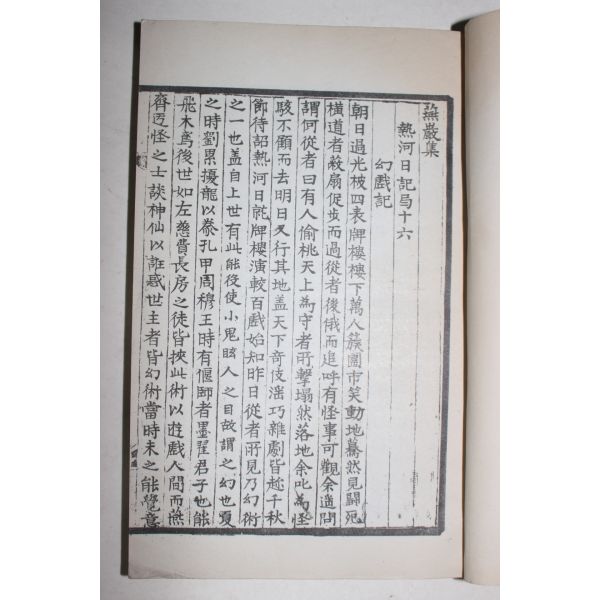 燕巖集
熱河日記局十六
幻戲記
朝日過光被四表牌樓樓下萬人簇圍市笑動地驀然見鬪死
橫道者蔽扇促步而過從者後俄而追呼有怪事可觀余遙問
謂何從者曰有人偷桃天上為守者所擊塌然落地余叱為怪
駭不顧而去明日又行其地盖天下奇伎淫巧雜劇皆趁千秋
節待詔熱河日就牌樓演較百戲始知昨日從者所見乃幻術
之一也盖自上世有此能役使小鬼眩人之目故謂之幻也夏
之時劉累擾龍以豢孔甲周穆王時有偃師者墨翟君子也能
飛木鳶後世如左慈費長房之徒皆挾此術以遊戲人間而燕
齊迂怪之士談神仙以誑惑世主者皆幻術當時未之能覺意